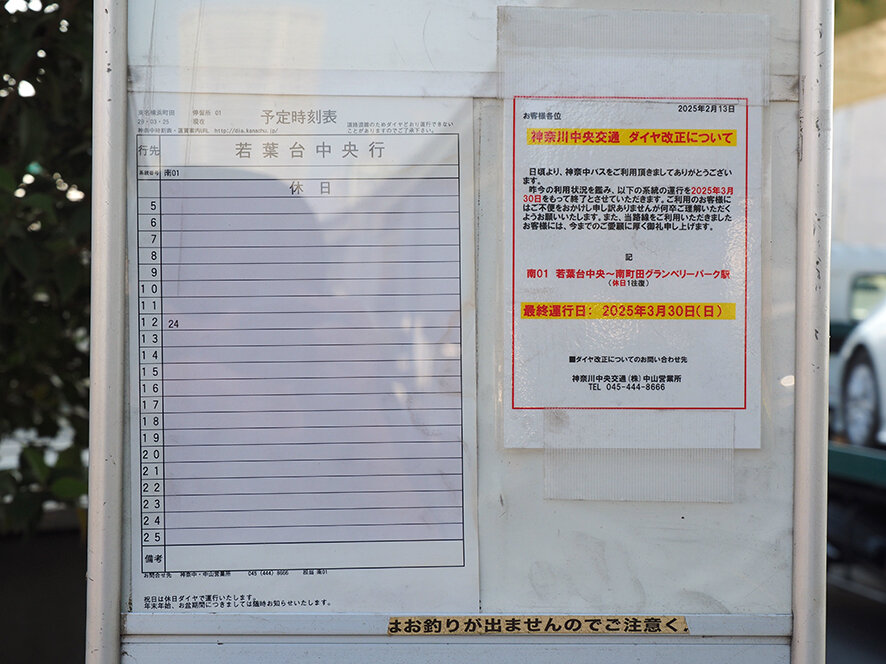 東名横浜町田 停留所 01
29-03-25 現在
神奈中時刻表・運賃案内URL http://dia.kanachu.jp/
予定時刻表
道路混雑のためダイヤどおり運行できない
ことがありますのでご了承下さい。
行先 若葉台中央行
系統番号 南01
休日
5
6
7
8
9
10
11
12 24
13
14
15
16
17
18
19
20
21
22
23
24
25
備考
お問合せ先 神奈中・中山営業所 045 (444) 8666 担当 南01
祝日は休日ダイヤで運行いたします。
年末年始、お盆期間につきましては随時お知らせいたします。
2025年2月13日
お客様各位
神奈川中央交通 ダイヤ改正について
日頃より、神奈中バスをご利用頂きましてありがとうござい
ます。
昨今の利用状況を鑑み、以下の系統の運行を2025年3月
30日をもって終了とさせていただきます。ご利用のお客様に
はご不便をおかけし申し訳ありませんが何卒ご理解いただく
ようお願いいたします。また、当路線をご利用いただきました
お客様には、今までのご愛顧に厚く御礼申し上げます。
記
南01 若葉台中央～南町田グランベリーパーク駅
(休日1往復)
最終運行日: 2025年3月30日(日)
■ダイヤ改正についてのお問い合わせ先
神奈川中央交通(株)中山営業所
TEL 045-444-8666
はお釣りが出ませんのでご注意く